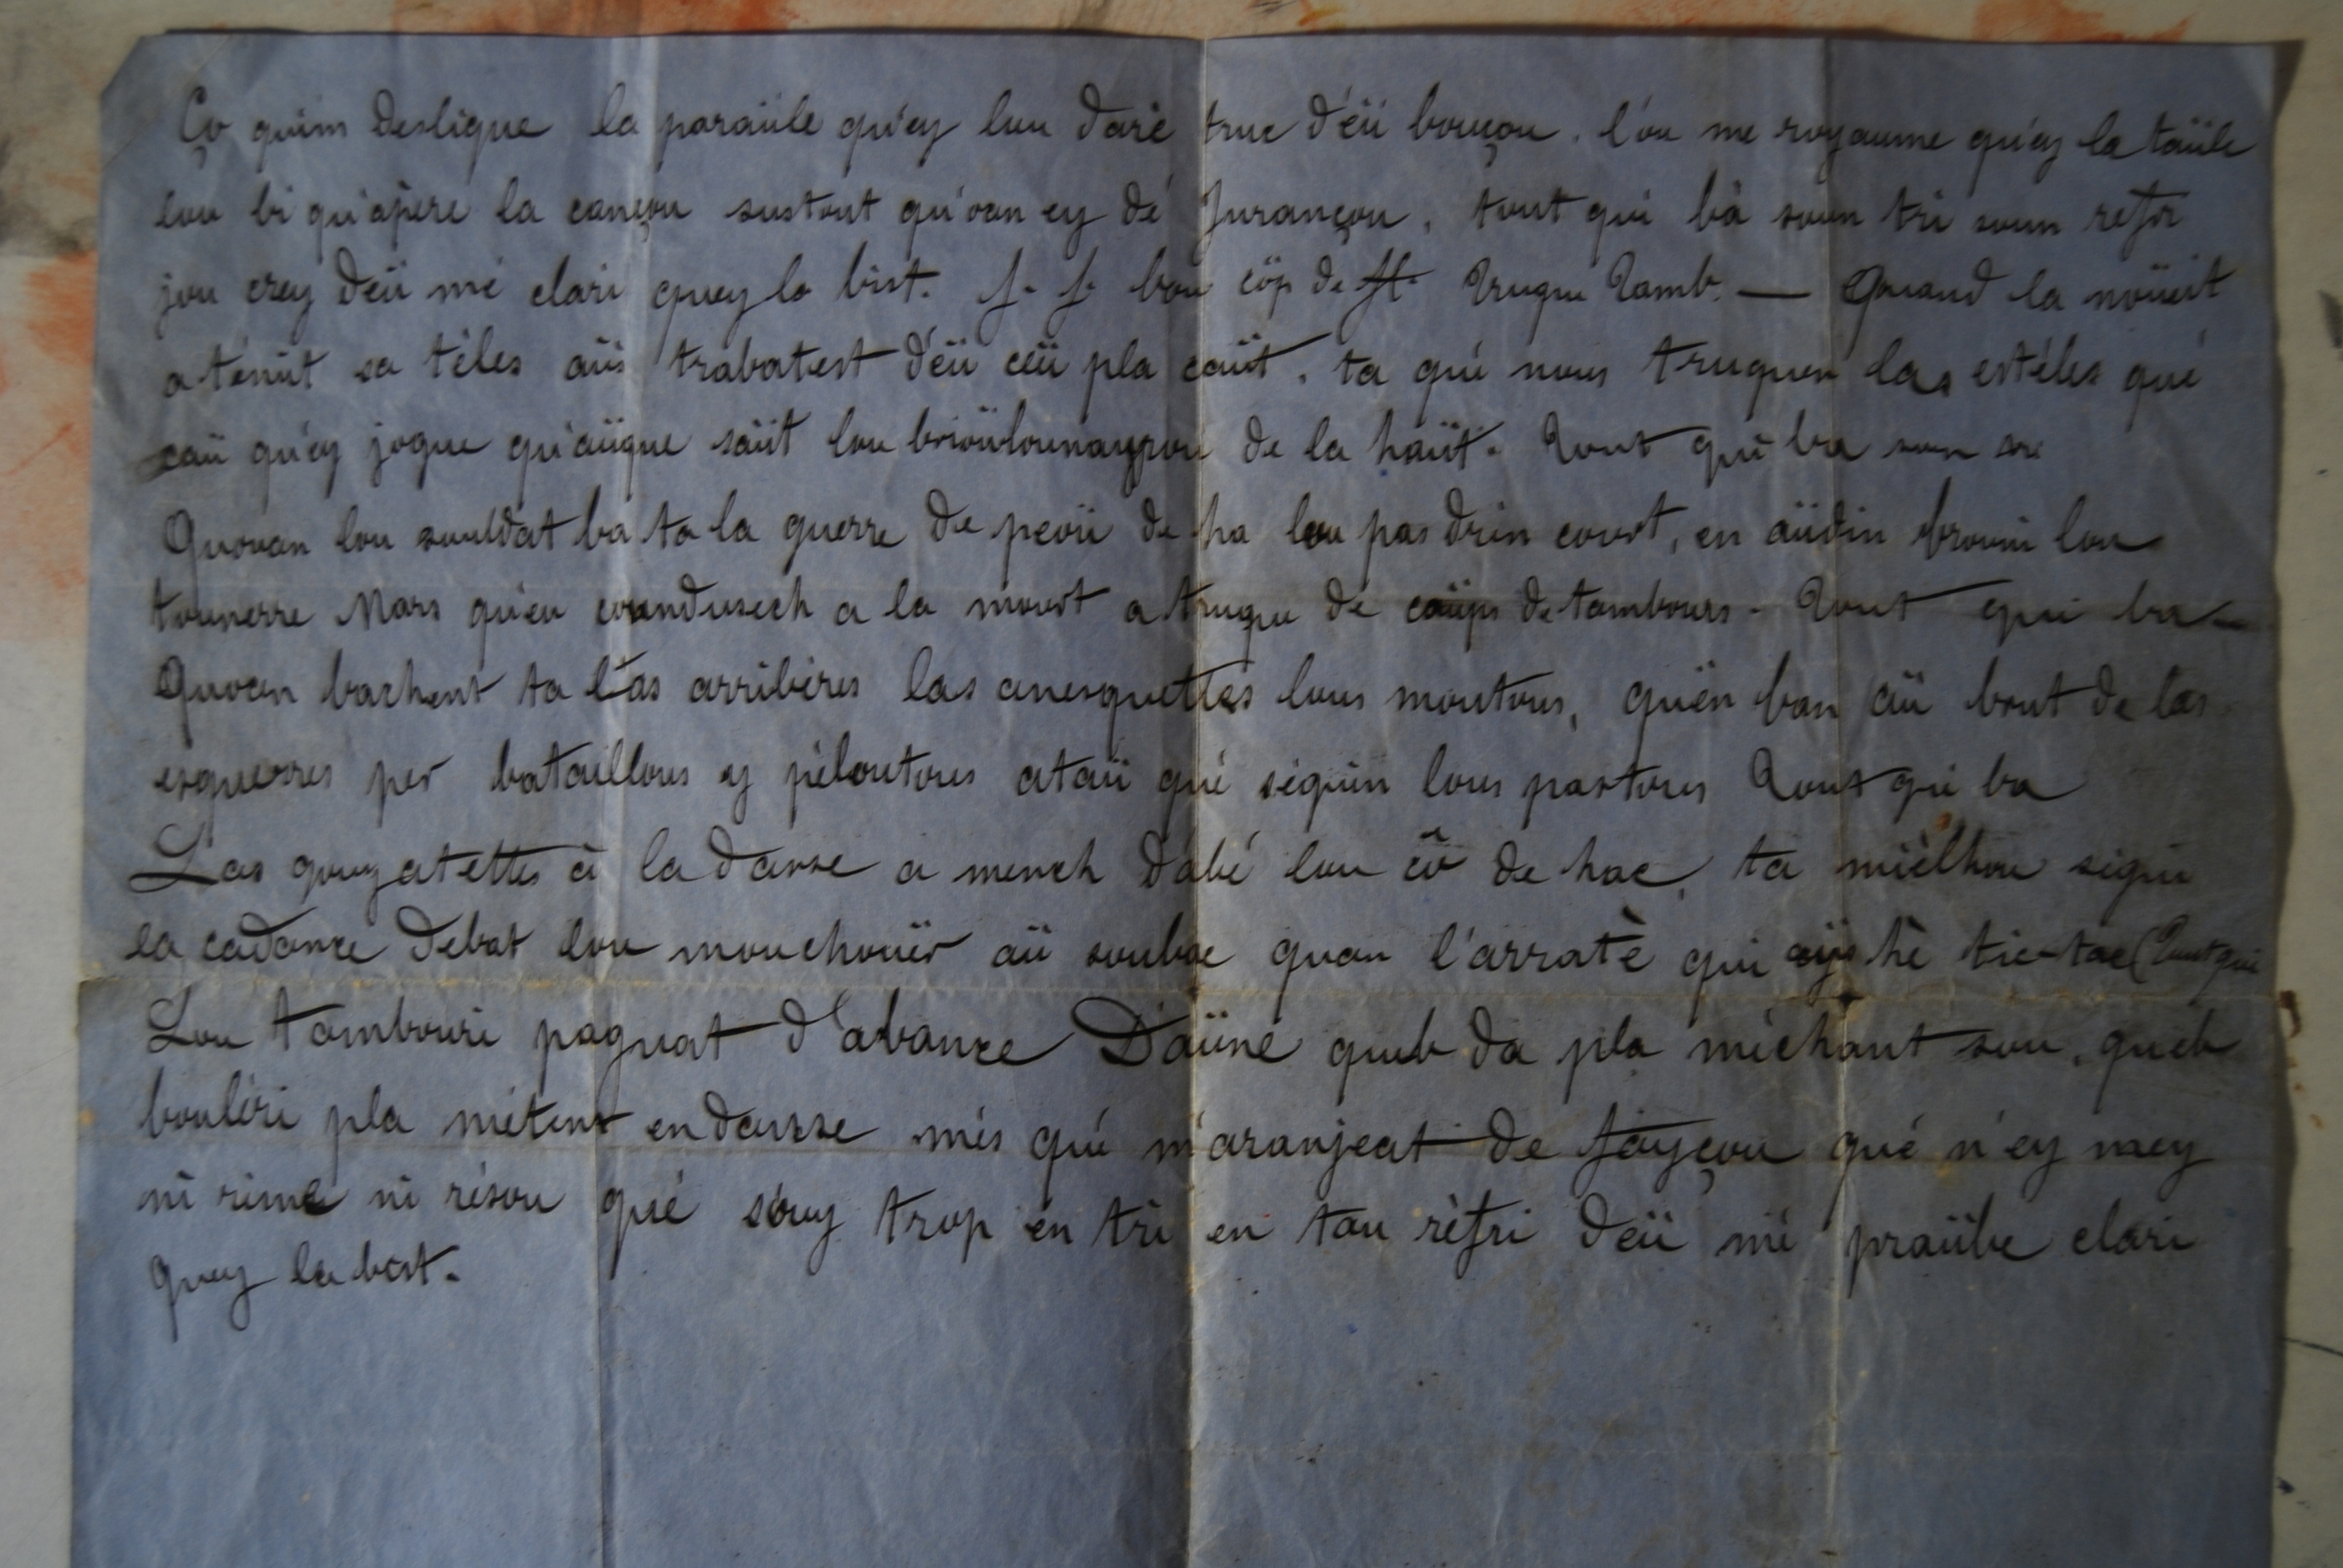 Ço quim desligue la paraüle qu'ey lou darè truc d'éü bouçou. l'ou me royaume qu'ey la taüle
lou bi qu'apère la cançou sustout qu'oan ey dé Jurançou, tout qui bà soun tri soun refr
jou crey déü mé clari quey la bist. f. f. bou cöp de ff. Truque Tamb. — Quand la noüeit
a ténut sa téles aüs trabatest d'éü céü pla caüt, ta qué nous truquen las estéles qué
caü qu'ey jogue qu'aüque saüt lou brioülounayrou de la haüt. Tout qui ba soun
Quoan lou souldat ba ta la guerre de peoü de ha lou pas drin court, en aüdin brouni lou
tounerre Mars qu'eu coundusech a la mourt a truque de coüps de tambours. Tout qui ba
Quoan bachent ta l'as arribères las anesquettes lous moutous, quén ban aü bout de las
esguerres per bataillous y péloutous ataü qué séguin lous pastous Tout qui ba
Las gouyatettes à la danse a mench dabé lou cö de hac, ta miélhou ségui
la cadanse debat lou mouchouër aü soubac quan l'arratè qui ays hè tic-tac (Tout qui
Lou tambouri paguat d'abance D'aüné queb da pla méchant sou, queb
bouléri pla météne en dansse més qué m'aranjeat de fayçou qué n'ey mey
ni rime ni résou qué souy trop én tri en tou réfri déü mé praübe clari
quey la bist.